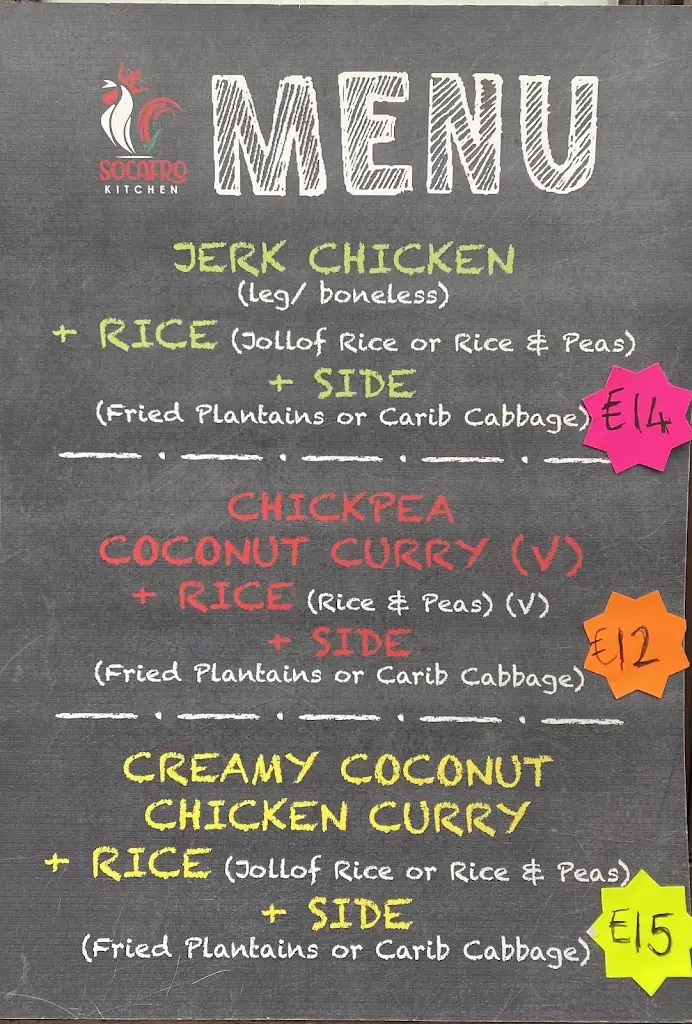 MENU
SOCAFRO
KITCHEN
JERK CHICKEN
(leg/ boneless)
+ RICE (Jollof Rice or Rice & Peas)
+ SIDE
(Fried Plantains or Carib Cabbage)
£14
CHICKPEA
COCONUT CURRY (V)
+ RICE (Rice & Peas) (V)
+ SIDE
(Fried Plantains or Carib Cabbage)
£12
CREAMY COCONUT
CHICKEN CURRY
+ RICE (Jollof Rice or Rice & Peas)
+ SIDE
(Fried Plantains or Carib Cabbage)
£15